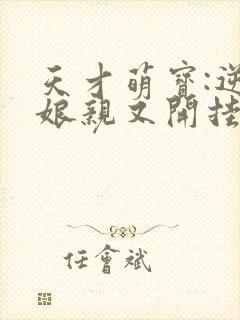 天才萌寶:逆
娘親又開挂
任會斌